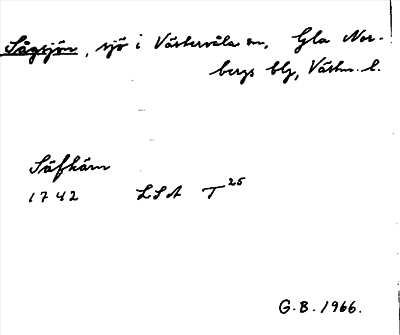 Sågsjön, sjö i Västervåla sn, Gla Nor-
bergs blg, Västm. l.
Säfkärn
1742 LSA T 25
G.B. 1966.